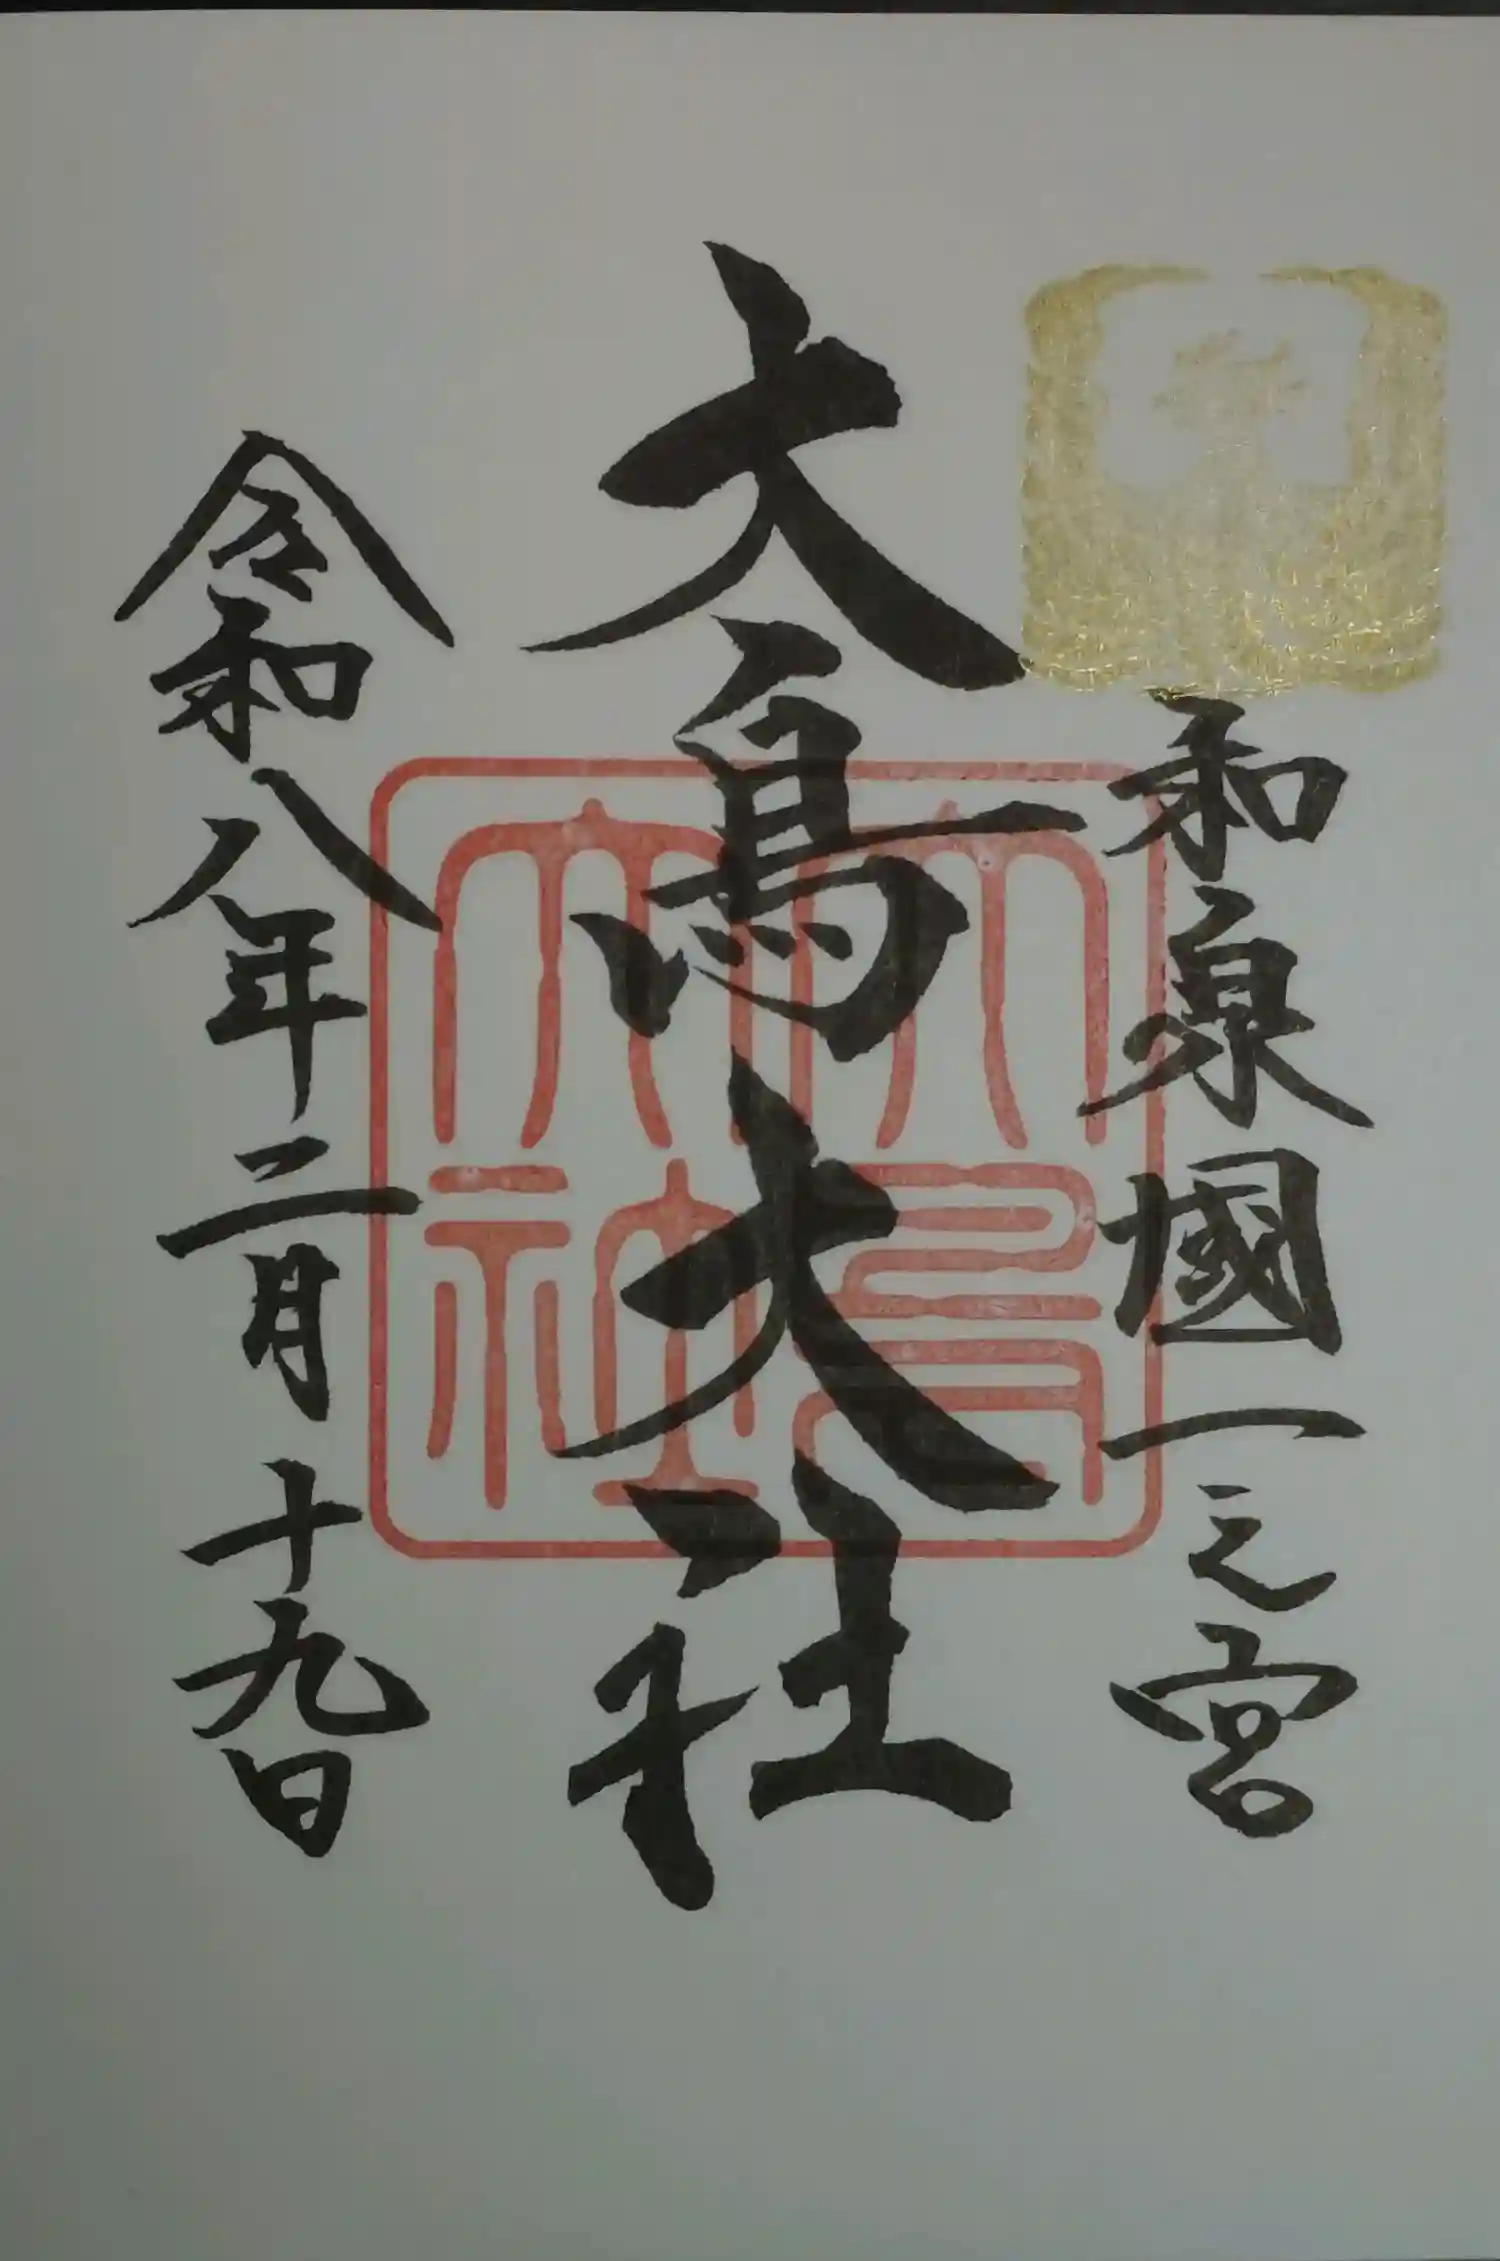 和泉國一之宮
大鳥大社
令和八年二月十九日
大鳥大社